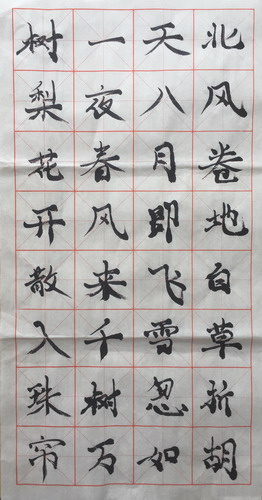 北风卷地白草折胡
天八月即飞雪忽如
一夜春风来千树万
树梨花开散入珠帘